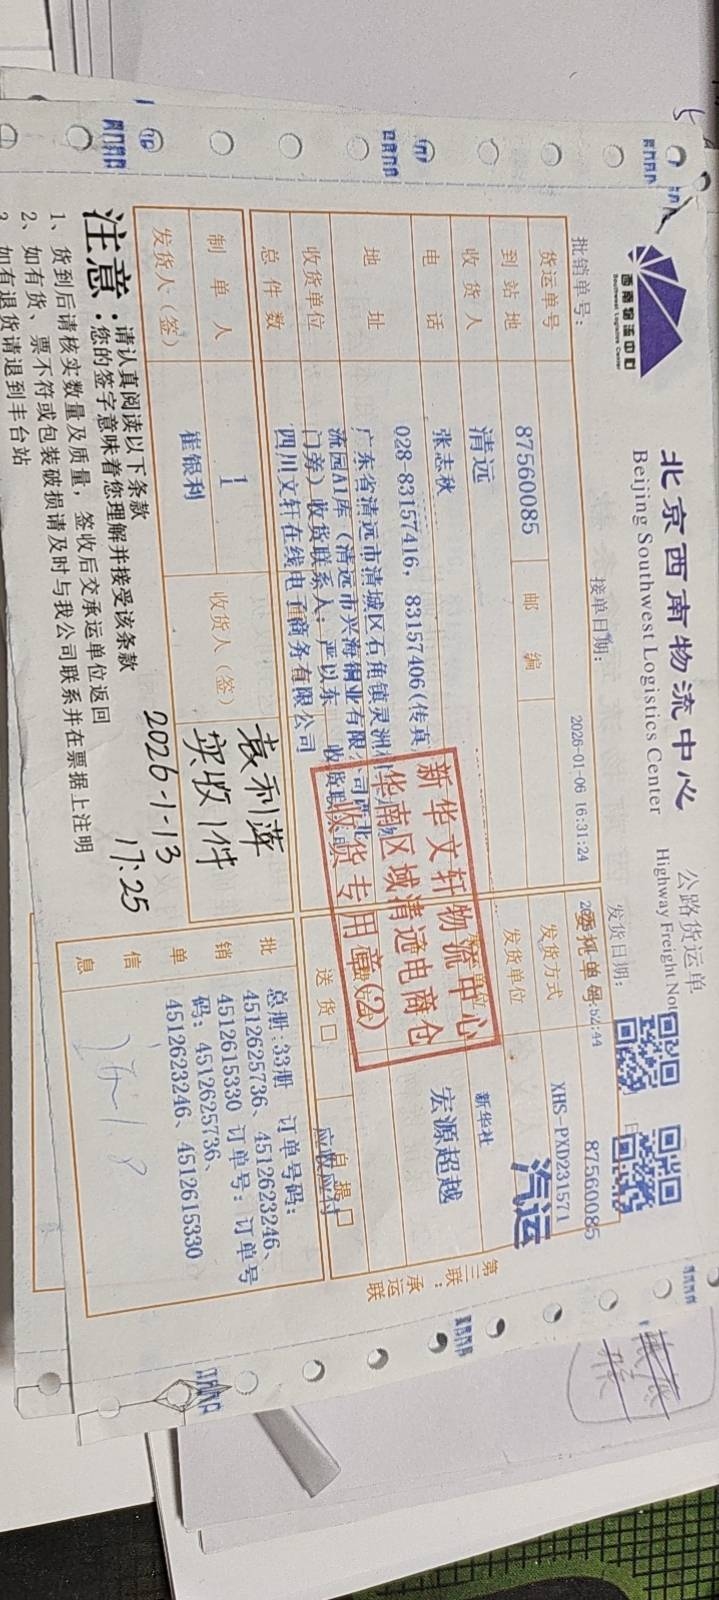 西南物流中心
Southwest Logistics Center
北京西南物流中心
Beijing Southwest Logistics Center
公路货运单
Highway Freight Not
批销单号：
接单日期：
2026-01-06 16:31:24
发货日期：
货运单号
87560085
邮编
委托单号
87560085
到站地
清远
发货方式
XHS-PXD231571
汽运
收货人
张志秋
发货单位
新华社
电话
028-83157416, 83157406(传真
宏源超越
地址
广东省清远市清城区石角镇灵洲
流园A1库（清远市兴海铜业有限公司西北
门旁）收货联系人：严以东 收货联
收货单位
四川文轩在线电子商务有限公司
新华文轩物流中心
华南区域清远电商仓
收货专用章(2)
总件数
1
送货口
自提口
应收应付
制单人
崔银利
收货人（签）
袁利萍
实收1件
2026-1-13
17:25
发货人（签）
批销单信息
总册:33册 订单号码:
4512625736、4512623246、
4512615330 订单号: 订单号
码: 4512625736、
4512623246、4512615330
第三联：承运联
注意：请认真阅读以下条款
您的签字意味着您理解并接受该条款
1、货到后请核实数量及质量，签收后交承运单位返回
2、如有货、票不符或包装破损请及时与我公司联系并在票据上注明
3、如有退货请退到丰台站